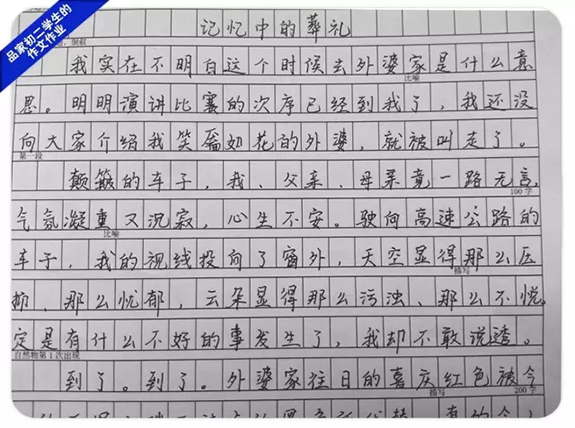 品家初二学生的
作文作业
记忆中的葬礼
倒叙
我实在不明白这个时候去外婆家是什么意
比喻
思。明明演讲比赛的次序已经到我了，我还没
向大家介绍我笑靥如花的外婆，就被叫走了。
第一段
颠簸的车子，我、父亲、母亲竟一路无言，
100字
气氛凝重又沉寂，心生不安。驶向高速公路的
比喻
车子，我的视线投向了窗外，天空显得那么压
描写
抑、那么忧郁，云朵显得那么污浊、那么不悦，
定是有什么不好的事发生了，我却不敢说透。
自然物第1次出现
到了。到了。外婆家往日的喜庆红色被今
描写